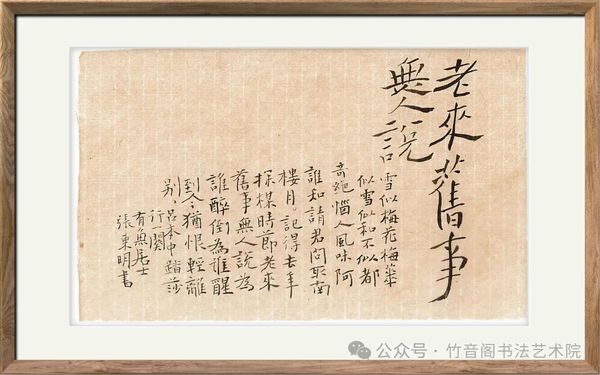 老來舊事
無人說
雪似梅花梅華
似雪似和不似都
奇絕惱人風味阿
誰知請君問取南
樓月記得去年
探楳時節老來
舊事無人說為
誰醉倒為誰醒
到今猶恨輕離
別呂本中踏莎
行一闋
有魚居士
張東明書
公众号·竹音阁书法艺术院